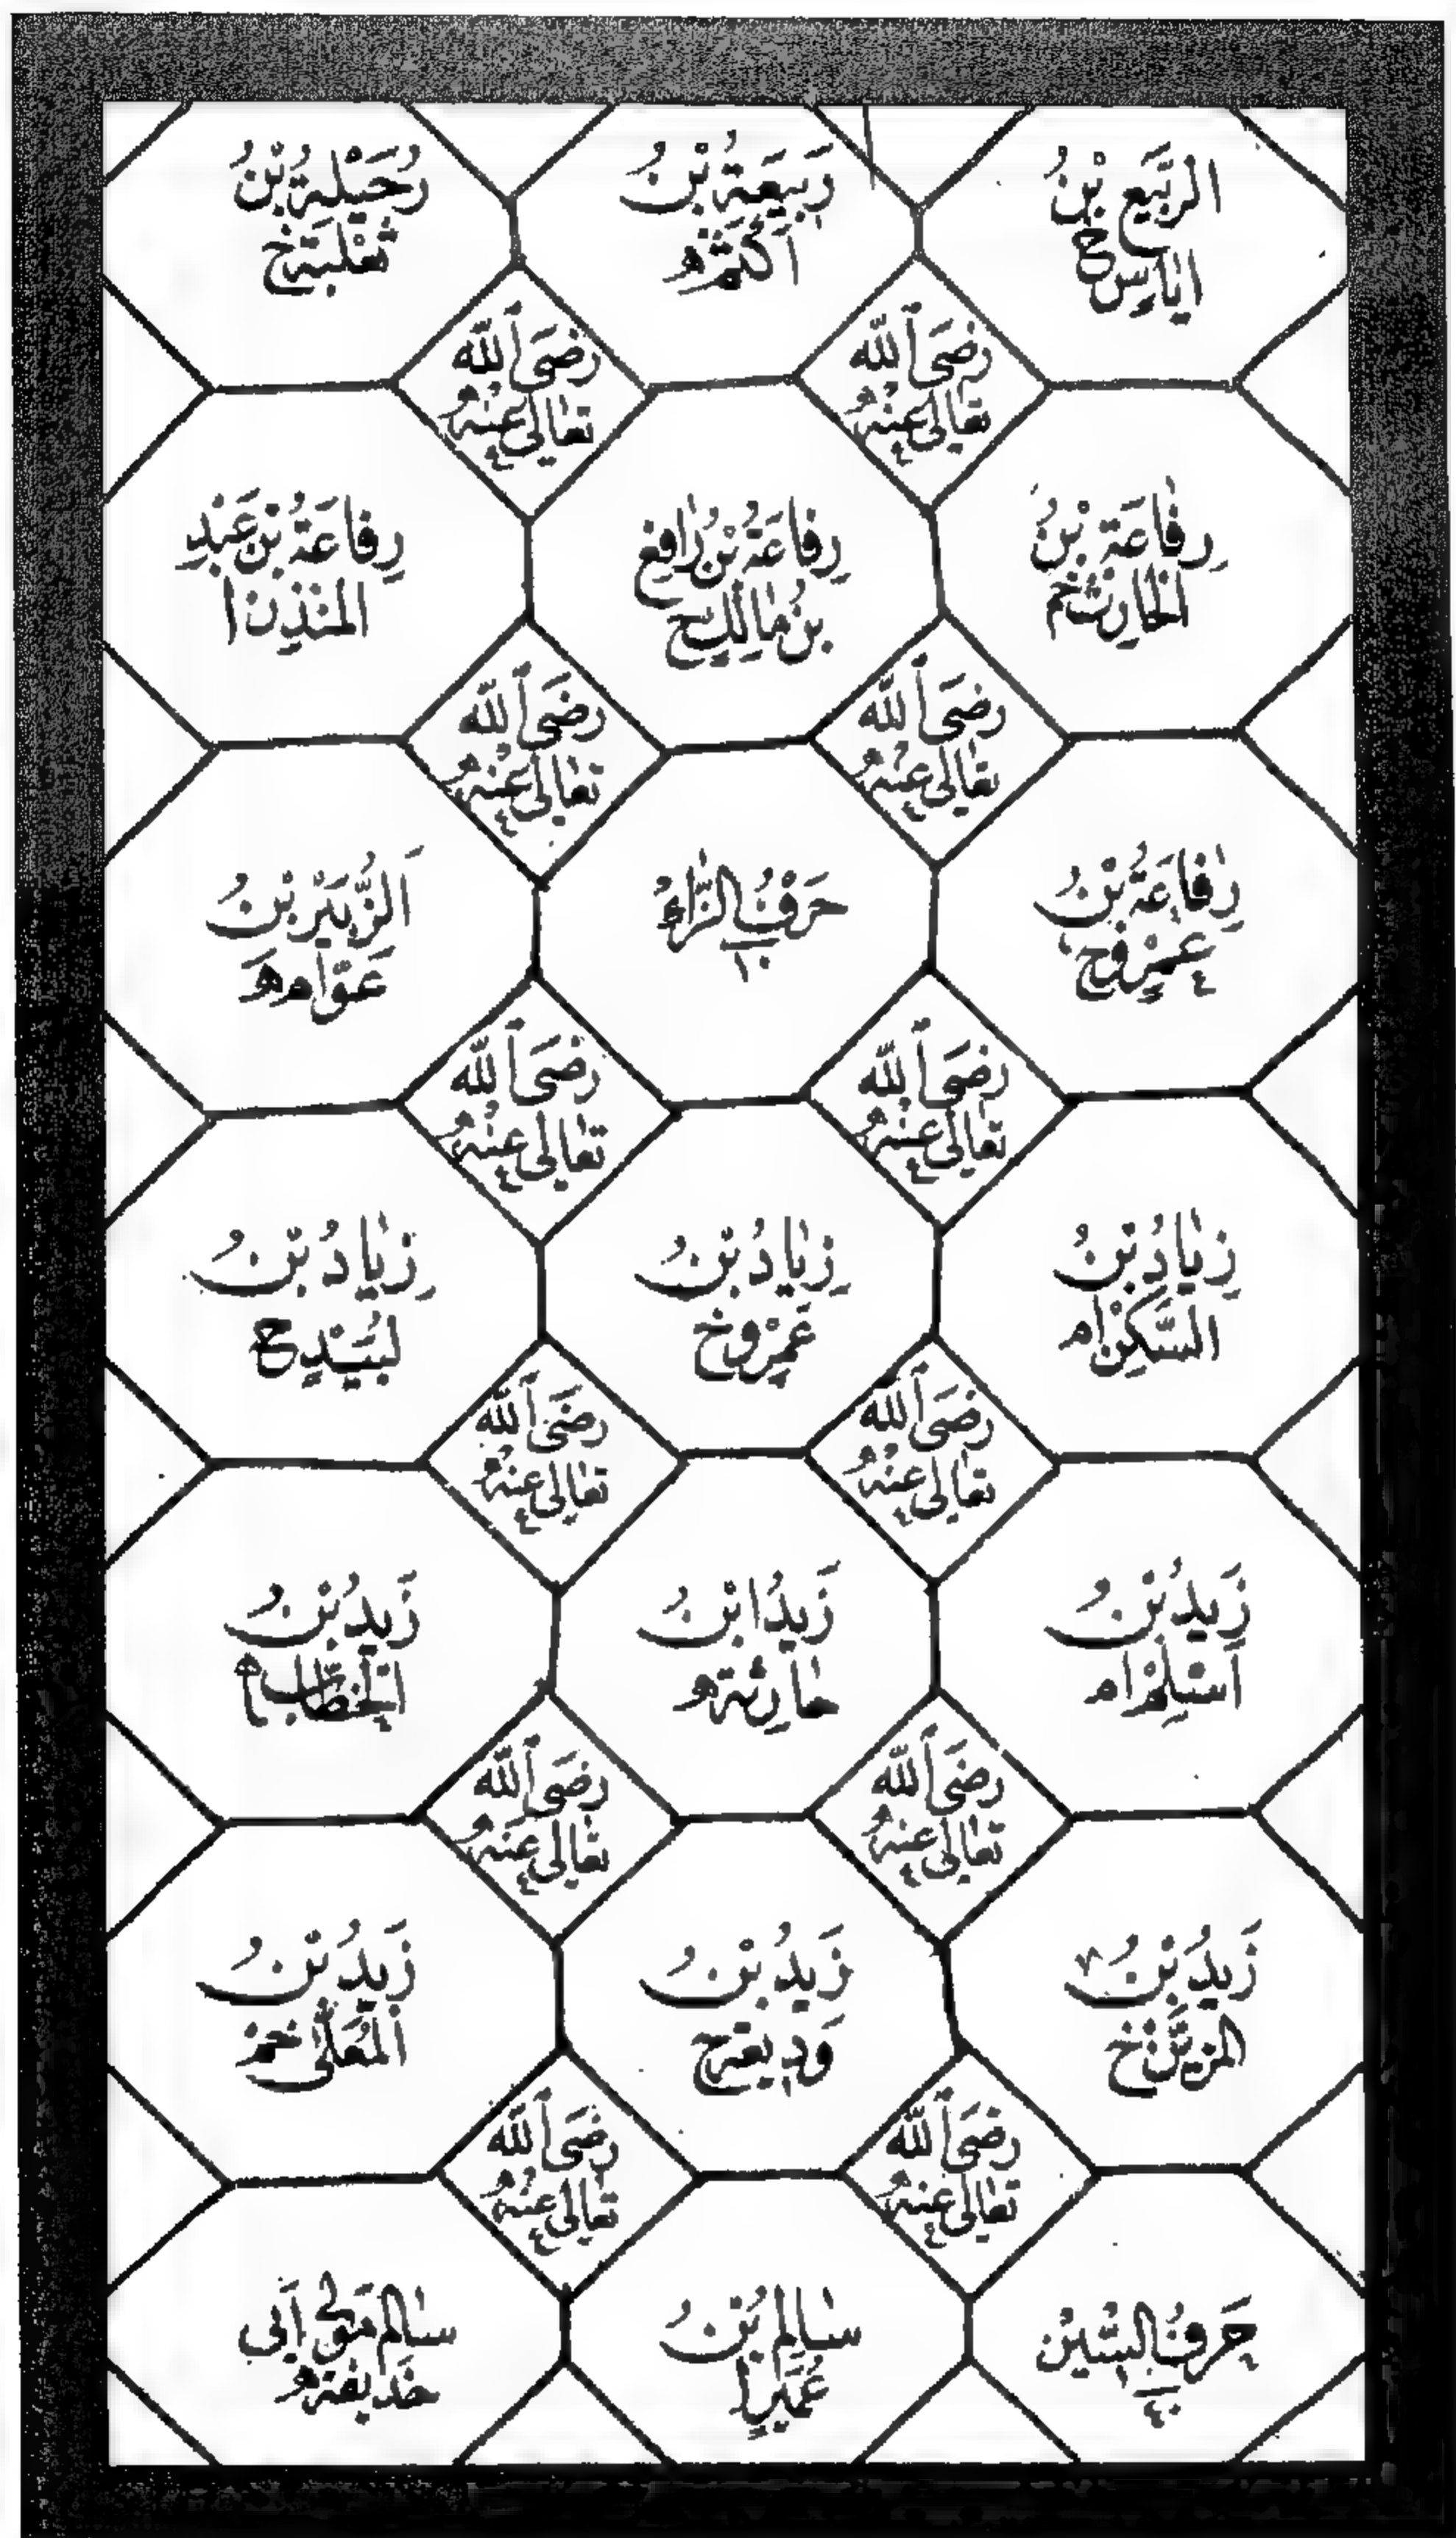 الرَّبِيعُ بْنُ
اِيَاسٍ خ
رَبِيعَةُ بْنُ
اَكْثَمَ هـ
رُحَيْلَةُ بْنُ
ثَعْلَبَةَ خ
رَضِيَ اللّٰه
تَعَالٰى عَنْهُ
رَضِيَ اللّٰه
تَعَالٰى عَنْهُ
رِفَاعَةُ بْنُ
الْحَارِثِ خ
رِفَاعَةُ بْنُ رَافِعِ
بْنِ مَالِكٍ خ
رِفَاعَةُ بْنُ عَبْدِ
الْمُنْذِرِ ا
رَضِيَ اللّٰه
تَعَالٰى عَنْهُ
رَضِيَ اللّٰه
تَعَالٰى عَنْهُ
رِفَاعَةُ بْنُ
عَمْرٍو خ
حَرْفُ الزَّاءِ
١٠
اَلزُّبَيْرُ بْنُ
عَوَّامٍ هـ
رَضِيَ اللّٰه
تَعَالٰى عَنْهُ
رَضِيَ اللّٰه
تَعَالٰى عَنْهُ
زِيَادُ بْنُ
السَّكَنِ ا
زِيَادُ بْنُ
عَمْرٍو خ
زِيَادُ بْنُ
لَبِيدٍ خ
رَضِيَ اللّٰه
تَعَالٰى عَنْهُ
رَضِيَ اللّٰه
تَعَالٰى عَنْهُ
زَيْدُ بْنُ
اَسْلَمَ ا
زَيْدُ ابْنُ
حَارِثَةَ هـ
زَيْدُ بْنُ
الْخَطَّابِ هـ
رَضِيَ اللّٰه
تَعَالٰى عَنْهُ
رَضِيَ اللّٰه
تَعَالٰى عَنْهُ
زَيْدُ بْنُ
الْمُزَيَّنِ خ
زَيْدُ بْنُ
وَدِيعَةَ خ
زَيْدُ بْنُ
الْمُعَلّٰى خ
رَضِيَ اللّٰه
تَعَالٰى عَنْهُ
رَضِيَ اللّٰه
تَعَالٰى عَنْهُ
حَرْفُ السِّيْنِ
٤٠
سَالِمُ بْنُ
عُمَيْرٍ ا
سَالِمُ مَوْلٰى اَبِي
حُذَيْفَةَ هـ